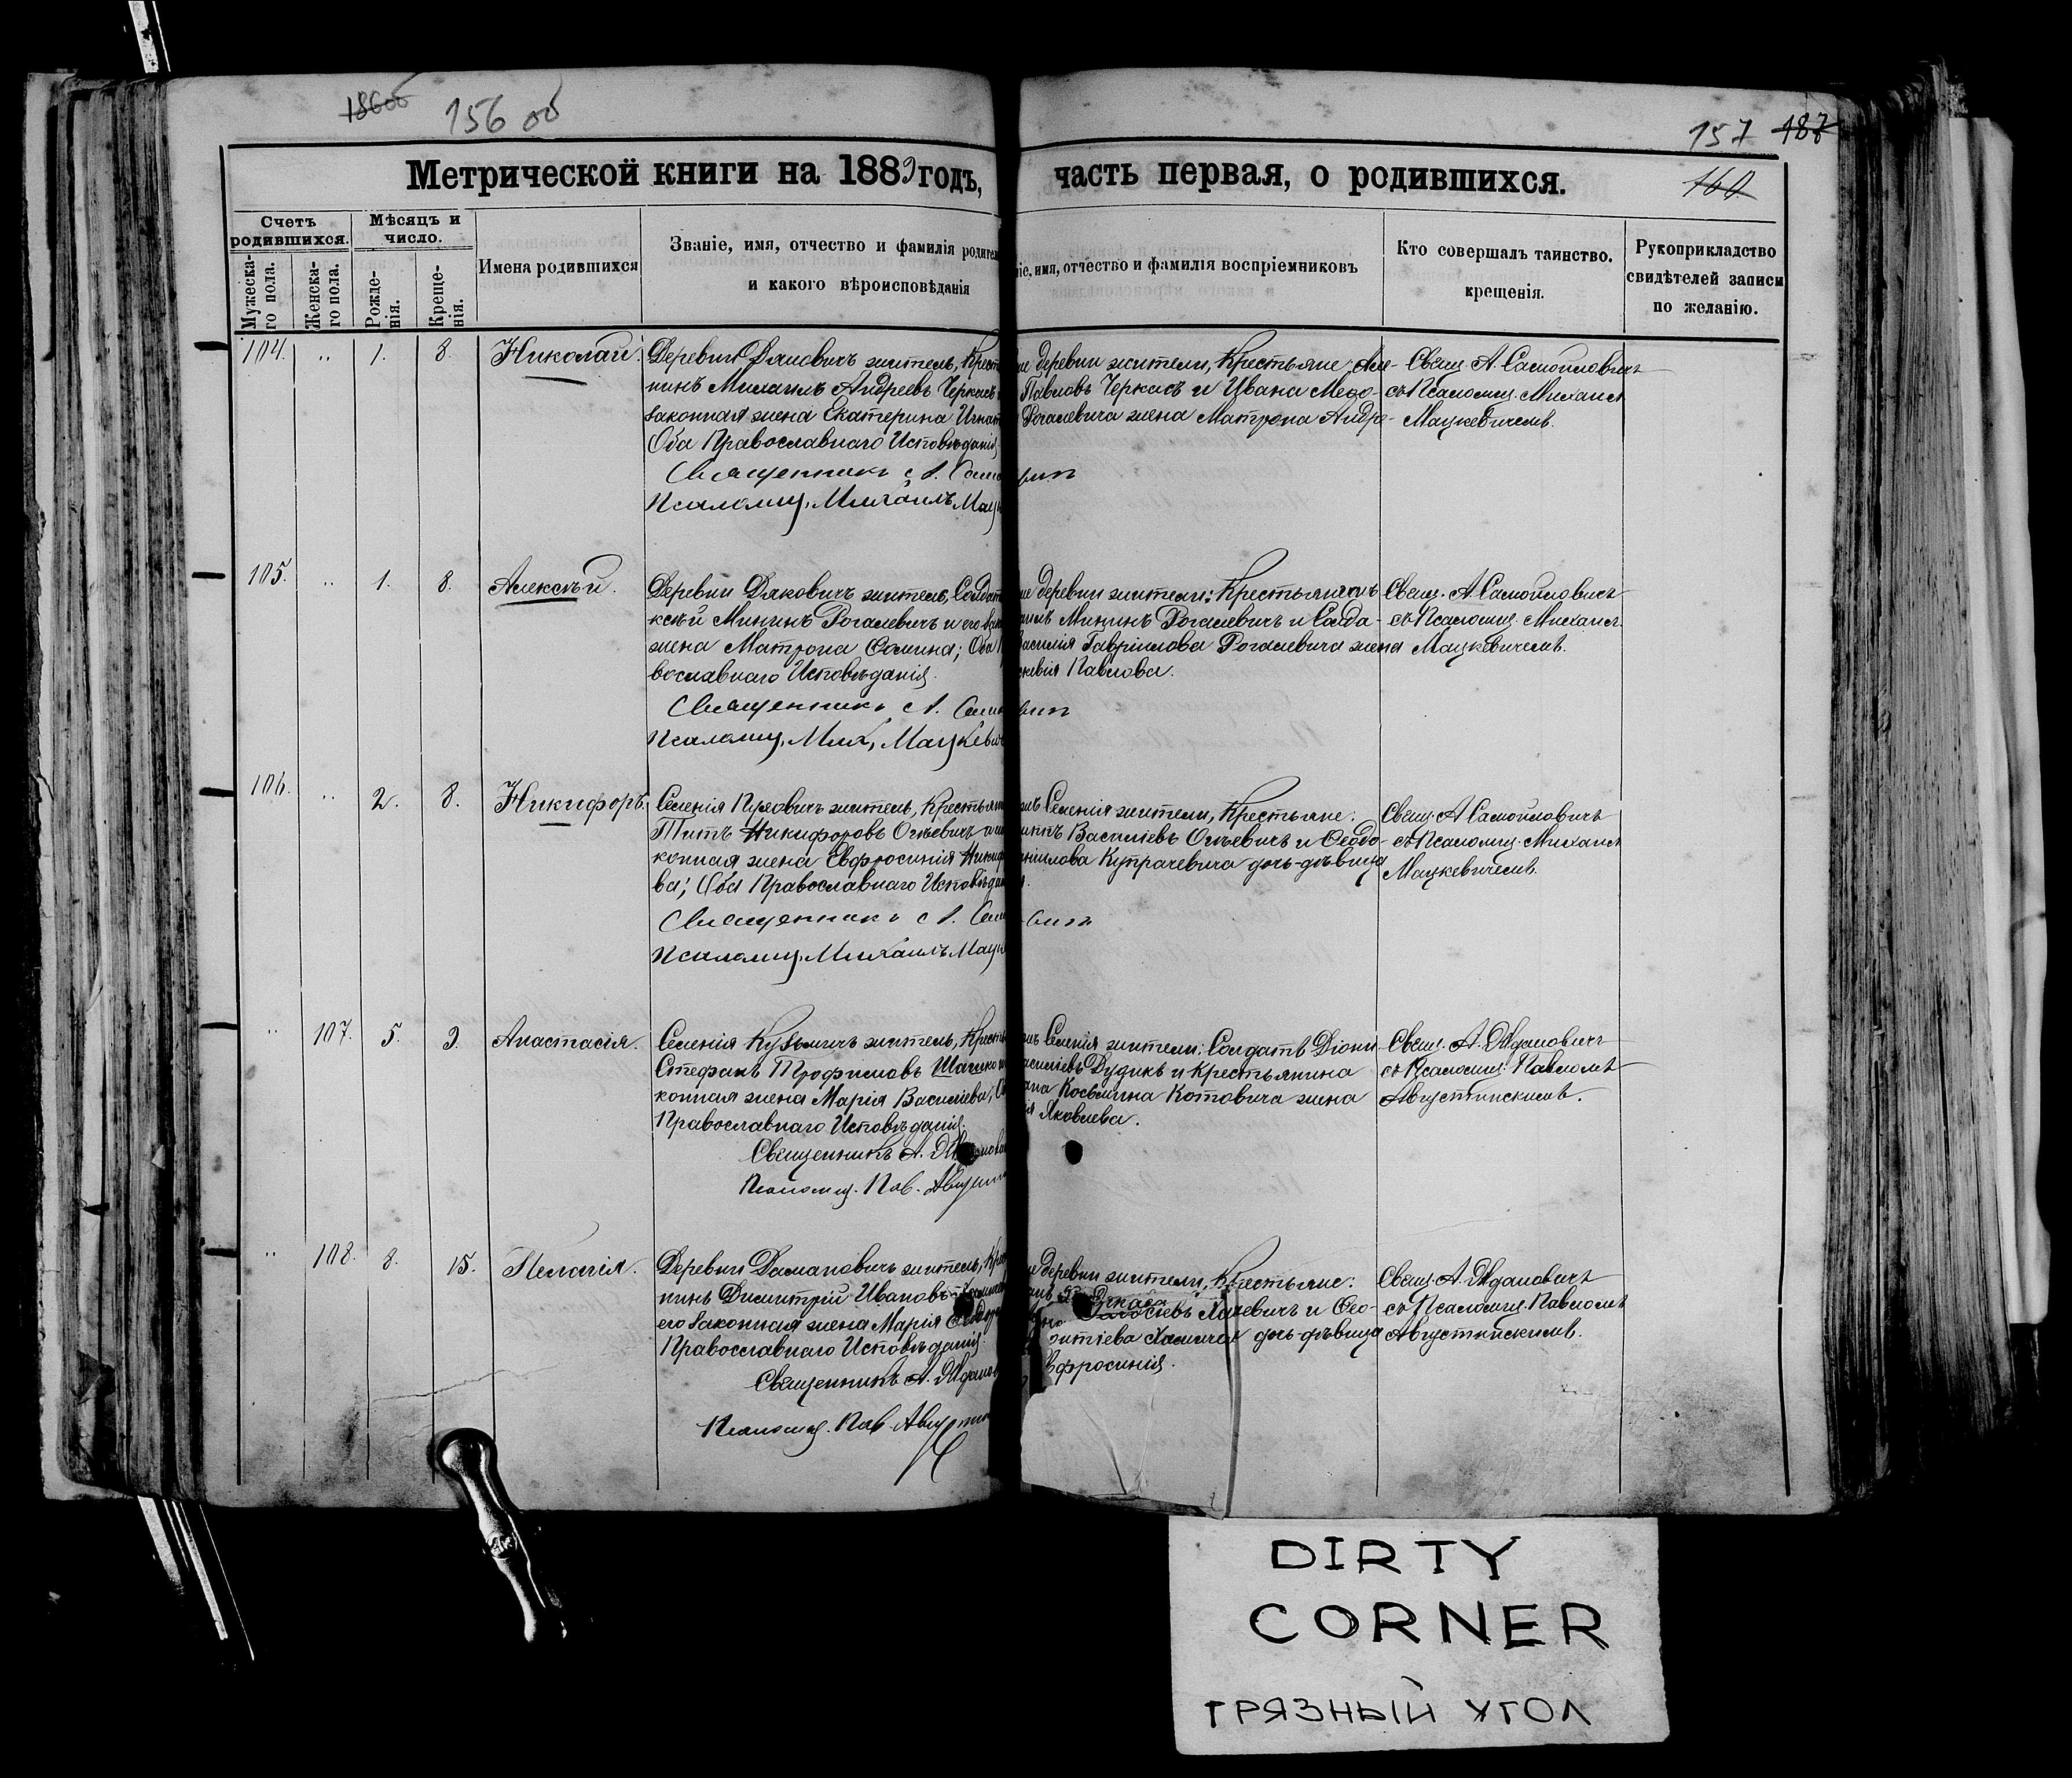 156 об
156 об
157 187
Метрической книги на 1889 годъ, часть первая, о родившихся.
160
Счетъ родившихся.
Мужеска-го пола.
Женска-го пола.
Мѣсяцъ и число.
Рожде-нія.
Креще-нія.
Имена родившихся
Званіе, имя, отчество и фамилія родител
и какого вѣроисповѣданія
іе, имя, отчество и фамилія воспріемниковъ
Кто совершалъ таинство.
крещенія.
Рукоприкладство
свидѣтелей записи
по желанію.
104. „ 1. 8. Николай.
Деревни жатель, Крест
нинъ Михаилъ Андреевъ Черкасъ
законная жена Екатерина Игнат
Оба Православнаго Исповѣданія
Священникъ А. Само
Псаломщ. Михаилъ Мацк
же деревни жители, Крестьяне:
Павловъ Черкасъ и Ивана
Рогалевича жена Матрона Андре-
Свящ. А. Самойловичъ
съ Псаломщ. Михаил
Мацкевичемъ.
105. „ 1. 8. Алексѣй.
Деревни Дяковичъ житель, Солдат
ксѣй Мининъ Рогалевичъ и его зак
жена Матрона Фомина; Оба П
вославнаго Исповѣданія.
Священникъ А. Само
Псаломщ. Мих. Мацкевич
же деревни жители: Крестьянинъ
аилъ Мининъ Рогалевичъ и Солда-
асилія Гавріилова Рогалевича жена
кевія Павлова.
Свящ. А. Самойловичъ
съ Псаломщ. Михаил
Мацкевичемъ.
106. „ 2. 8. Никифоръ.
Селенія житель, Крестьян
Титъ Никифоровъ Огіевичъ и
конная жена Евфросинія Никиф
ва; Оба Православнаго Исповѣдан
Священникъ А. Само
Псаломщ. Михаилъ Мацк
Селенія жители, Крестьяне:
Василіевъ Огіевичъ и Ѳеодо-
ніилова Купрачевича дочь-дѣвица
Свящ. А. Самойловичъ
съ Псаломщ. Михаил
Мацкевичемъ.
„ 107. 5. 9. Анастасія.
Селенія Кузьмичъ житель, Кресть
Стефанъ Трофимовъ
конная жена Марія Василіева; О
Православнаго Исповѣданія.
Священникъ А. Ждановичъ
Псаломщ. Пав. Августин
Селенія жители: Солдатъ Діони
асиліевъ Дудикъ и Крестьянина
ана Косьмина Котовича жена
ія Яковлева.
Свящ. А. Ждановичъ
съ Псаломщ. Павломъ
Августинскимъ.
„ 108. 8. 15. Пелагія.
Деревни Дамановичъ житель, Кре
нинъ Димитрій Ивановъ
его законная жена Марія Ѳеодор
Православнаго Исповѣданія.
Священникъ А. Жданов
Псаломщ. Пав. Августин
же деревни жители, Крестьяне:
Хацевичъ и Ѳео-
дочь-дѣвица
Ефросинія.
Свящ. А. Ждановичъ
съ Псаломщ. Павломъ
Августинскимъ.
DIRTY
CORNER
ГРЯЗНЫЙ УГОЛ